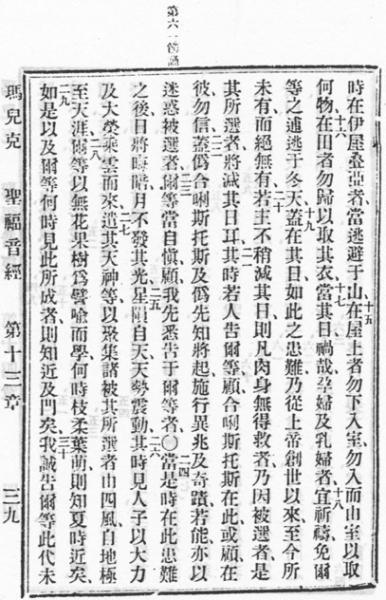 第六一
時在伊屋疊亞者當逃避于山十五在屋上者勿下入室勿入而由室以取
何物十六在田者勿歸以取其衣十七當其日禍哉孕婦及乳婦者十八宜祈禱免爾
等之逋逃于冬天十九蓋在其日如此之患難乃從上帝創世以來至今所
未有而絕無有二十若主不稍減其日則凡肉身無得救者乃因被選者是
其所選者將減其日耳二一其時若人告爾等顧合唎斯托斯在此或顧在
彼勿信二二蓋偽合唎斯托斯及偽先知將起施行異兆及奇蹟若能亦以
迷惑被選者二三爾等當自慎顧我先悉告于爾等者〇二四當是時在此患難
之後日將晦暗月不發其光二五星隕自天天勢震動二六其時見人子以大力
及大榮乘雲而來二七遣其天神等以聚集諸被其所選者由四風自地極
至天涯二八爾等以無花果樹爲譬喻而學何時枝柔葉萌則知夏時近矣
二九如是以及爾等何時見此所成者則知近及門矣三十我誠告爾等此代未
瑪兒克 聖福音經 第十三章 三九